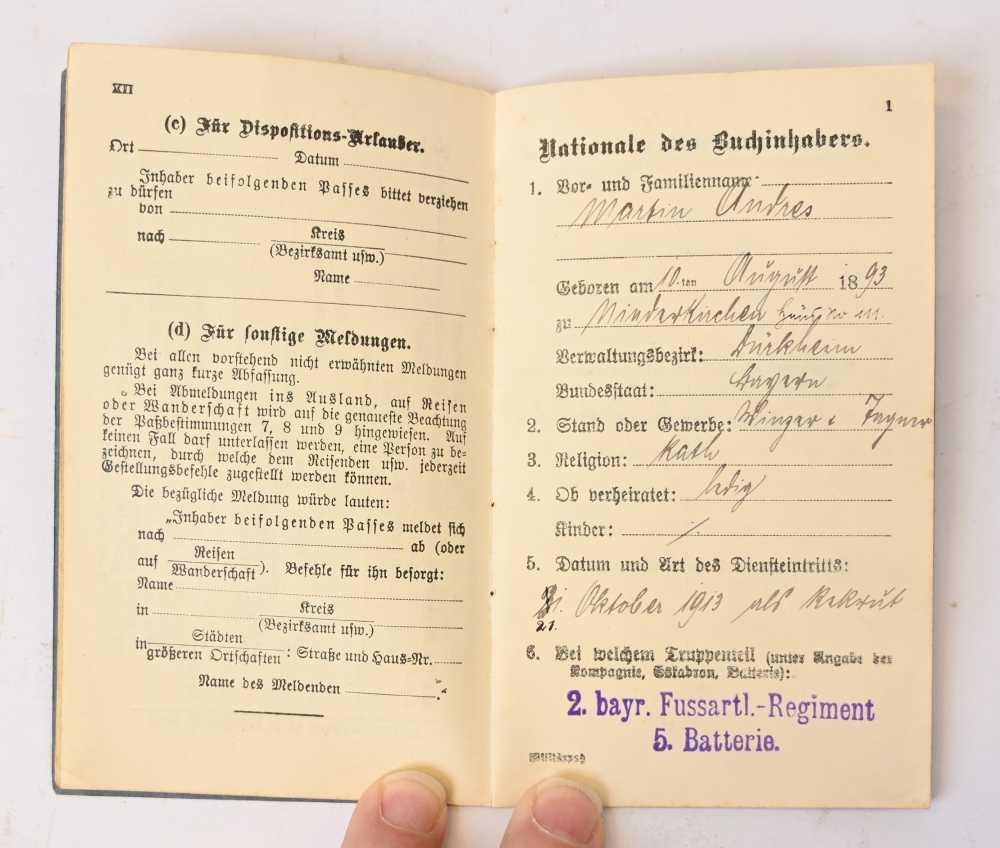 XII
(c) Für Dispositions-Urlauber.
Ort Datum
Inhaber beifolgenden Passes bittet verziehen
zu dürfen
von
nach Kreis
(Bezirksamt usw.)
Name
(d) Für sonstige Meldungen.
Bei allen vorstehend nicht erwähnten Meldungen
genügt ganz kurze Abfassung.
Bei Abmeldungen ins Ausland, auf Reisen
oder Wanderschaft wird auf die genaueste Beachtung
der Paßbestimmungen 7, 8 und 9 hingewiesen. Auf
keinen Fall darf unterlassen werden, eine Person zu be-
zeichnen, durch welche dem Reisenden usw. jederzeit
Gestellungsbefehle zugestellt werden können.
Die bezügliche Meldung würde lauten:
„Inhaber beifolgenden Passes meldet sich
nach ab (oder
auf Reisen
Wanderschaft). Befehle für ihn besorgt:
Name
in Kreis
(Bezirksamt usw.)
in Städten
größeren Ortschaften : Straße und Haus-Nr.
Name des Meldenden ."
1
Nationale des Buchinhabers.
1. Vor- und Familienname:
Martin Andres
Geboren am 10.ten August 1893
zu Niederkirchen
Verwaltungsbezirk: Dürkheim
Bundesstaat: Bayern
2. Stand oder Gewerbe: Winzer
3. Religion: kath
4. Ob verheiratet: ledig
Kinder: /.
5. Datum und Art des Diensteintritts:
21. Oktober 1913 als Rekrut
21.
6. Bei welchem Truppenteil (unter Angabe der
Kompagnie, Eskadron, Batterie):
2. bayr. Fussartl.-Regiment
5. Batterie.
Militärpaß